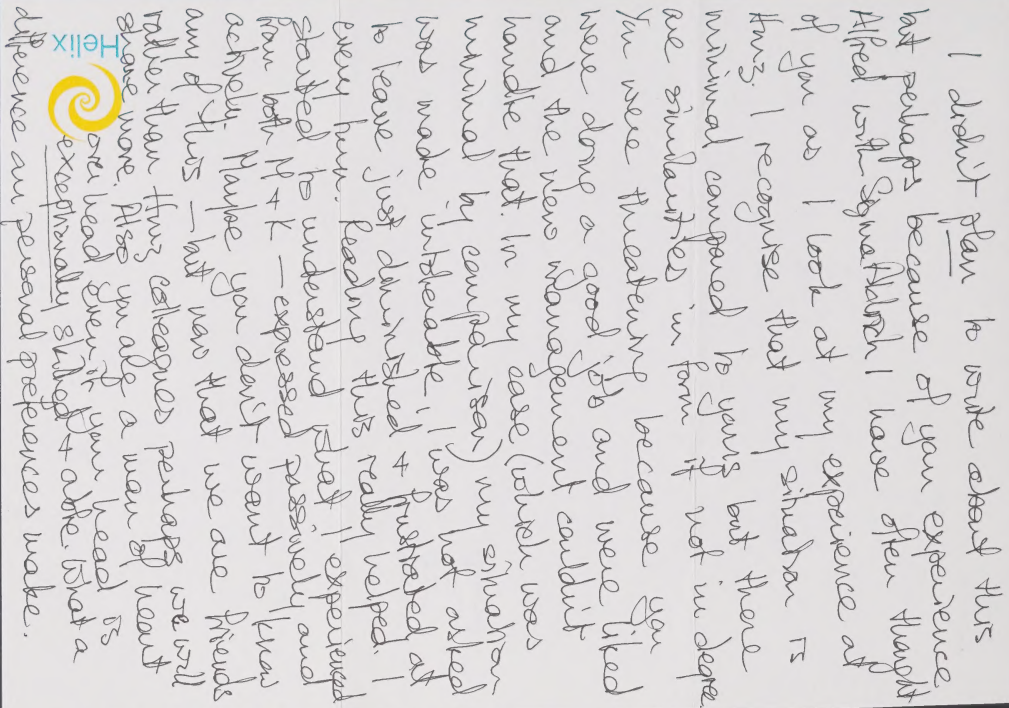 I didn't plan to write about this
but perhaps because of your experience
Alfred with Sigma Aldrich I have often thought
of you as I look at my experience at
Hms. I recognise that my situation is
minimal compared to yours but there
are similarities in form if not in degree.
You were threatening because you
were doing a good job and were liked
and the new management couldn't
handle that. In my case (which was
minimal by comparison) my situation
was made intolerable; I was not asked
to leave just diminished + frustrated at
every turn. Reading this really helped. I
started to understand what I experienced
from both M + K - expressed passively and
actively. Maybe you don't want to know
any of this - but now that we are friends
rather than Hms colleagues perhaps we will
share more. Also you are a man of heart
over head even if your head is
exceptionally skilled + able. What a
difference our personal preferences make.
Helix